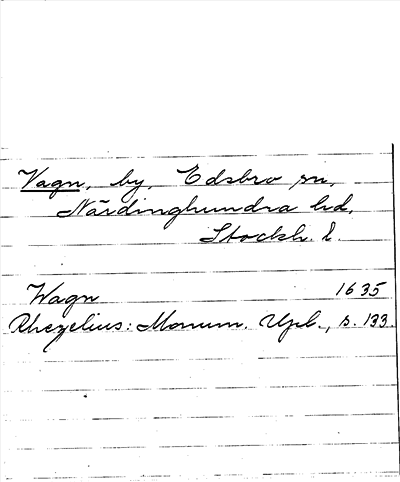 Vagn, by, Edsbro sn,
Närdinghundra hd,
Stockh. l.
Wagn 1635
Rhezelius: Monum. Upl., s. 133.